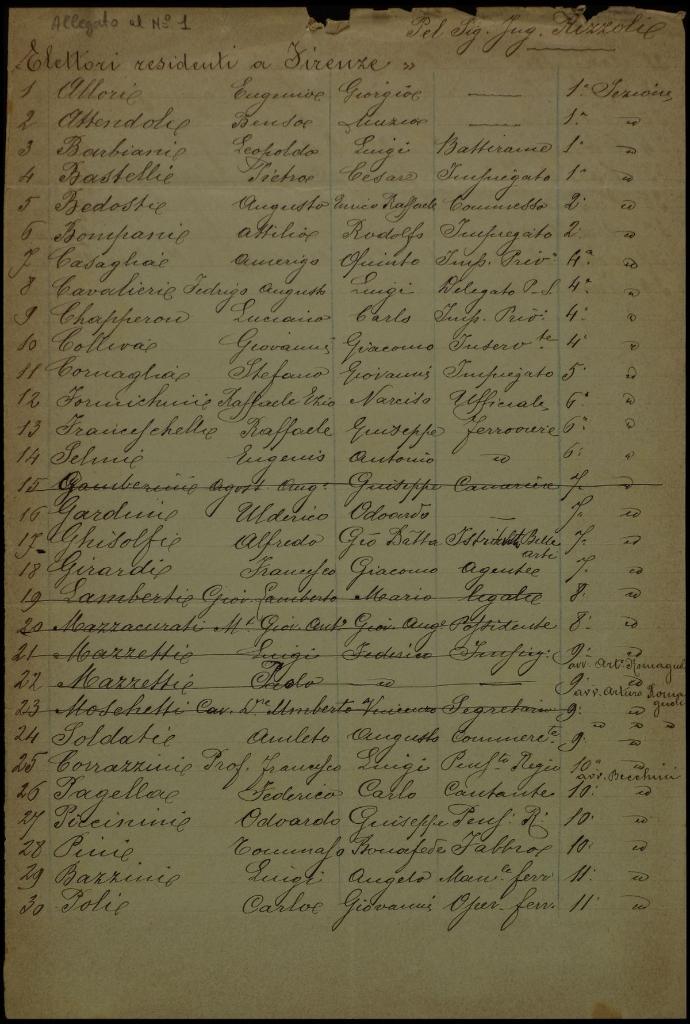 Allegato al Nº 1
Pel Sig. Ing. Rizzoli
Elettori residenti a Firenze "
1 Allori Eugenio Giorgio — 1ª Sezione
2 Attendoli Benso Muzio — 1ª "
3 Barbiani Leopoldo Luigi Battirame 1ª "
4 Bastelli Pietro Cesare Impiegato 1ª "
5 Bedosti Augusto Enrico Raffaele Commesso 2ª "
6 Bompani Attilio Rodolfo Impiegato 2ª "
7 Casaglia Amerigo Quinto Imp. Priv. 4ª "
8 Cavalieri Fedrigo Augusto Luigi Delegato P.S. 4ª "
9 Chapperon Luciano Carlo Imp. Priv. 4ª "
10 Colliva Giovanni Giacomo Inservte 4ª "
11 Cornaglia Stefano Giovanni Impiegato 5ª "
12 Formichini Raffaele Ezio Narciso Ufficiale 6ª "
13 Franceschelli Raffaele Giuseppe ferroviere 6ª "
14 Selmi Eugenio Antonio " 6ª "
15 Gamberini Agost. Aug. Giuseppe 7ª "
16 Gardini Ulderico Odoardo — 7ª "
17 Ghisolfi Alfredo Gio Batta Belle arti 7ª "
18 Girardi Francesco Giacomo Agente 7ª "
19 Lamberti Giov. Lamberto Mario legale 8ª "
20 Mazzacurati Mse Giov. Anto Giov. Aug. Possidente 8ª "
21 Mazzetti Luigi Federico Impieg. 9ª "
avv. Arto Romagnoli
22 Mazzetti Paolo " — 9ª "
avv. Arturo Romagnoli
23 Moschetti Cav. Dre Umberto Vincenzo Segretario 9ª "
" " " "
24 Soldati Amleto Augusto Commerte 9ª "
25 Corrazzini Prof. Francesco Luigi Pensto Regio 10ª "
avv. Becchini
26 Pagella Federico Carlo Cantante 10ª "
27 Piccinini Odoardo Giuseppe Pens. R. 10ª "
28 Pini Tommaso Bonafede Fabbro 10ª "
29 Bazzini Luigi Angelo Manle ferr 11ª "
30 Poli Carlo Giovanni Oper. ferr. 11ª "